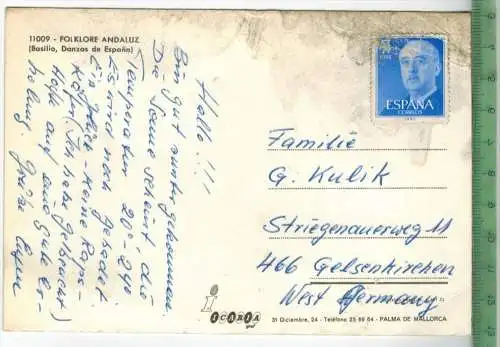 11009 - FOLKLORE ANDALUZ
(Basilio, Danzas de España)
Hallo!!!
Bin gut runter gekommen.
Die Sonne scheint, die
Temperatur 20-24°
Es wird noch gebadet
Ein Glück - keine Kaps-
Hoffe auf eine gute Er-
holung. Grüße
ESPAÑA
CORREOS
Familie
G. Kulik
Striegenauerweg 11
466 Gelsenkirchen
West Germany
ICARIA
31 Diciembre, 24 - Teléfono 25 99 64 - PALMA DE MALLORCA